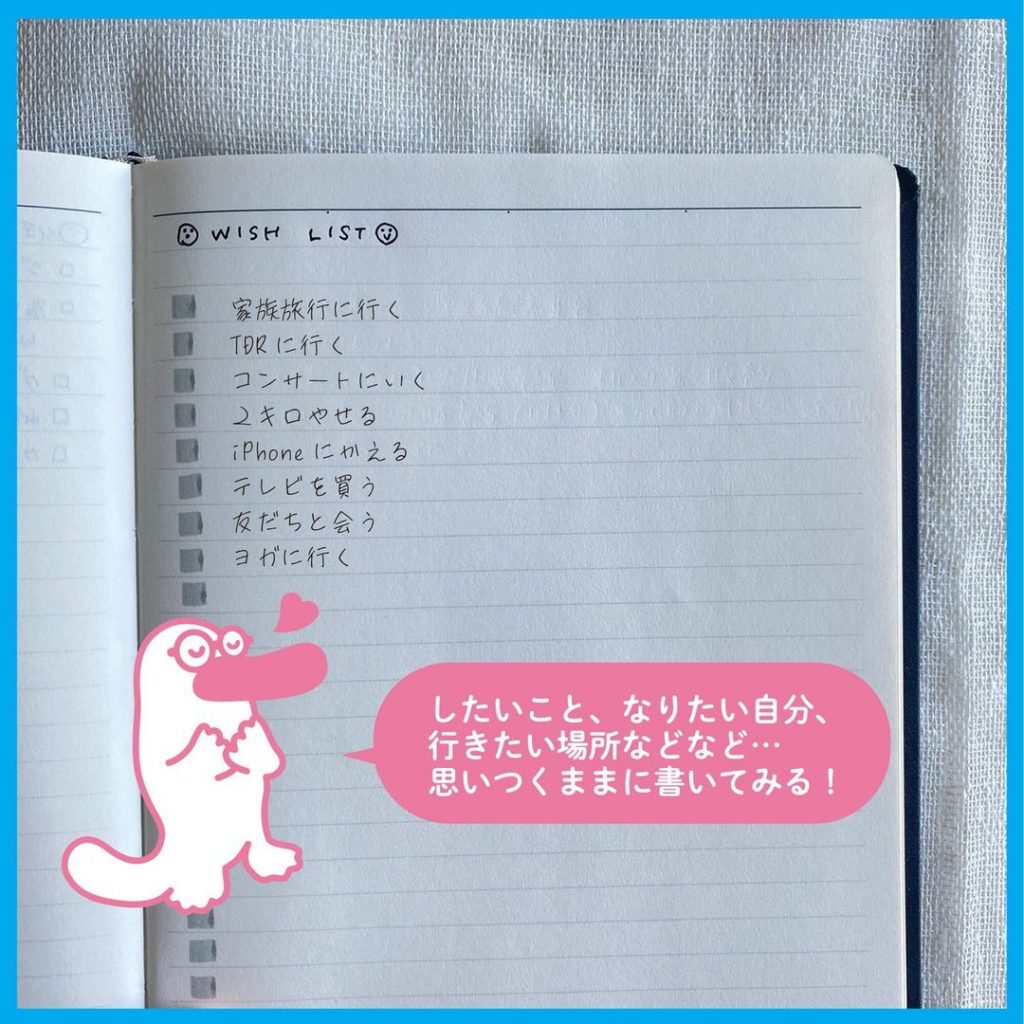 WISH LIST
家族旅行に行く
TDRに行く
コンサートにいく
2キロやせる
iPhoneにかえる
テレビを買う
友だちと会う
ヨガに行く
したいこと、なりたい自分、
行きたい場所などなど…
思いつくままに書いてみる！